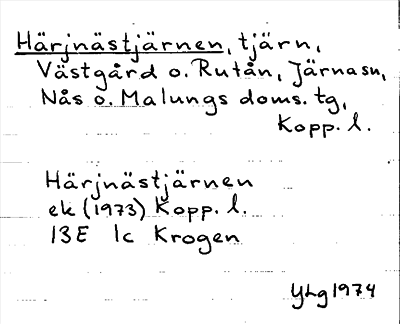 Härjnästjärnen, tjärn,
Västgård o. Rutån, Järnasn,
Nås o. Malungs doms. tg,
Kopp. l.
Härjnästjärnen
ek (1973) Kopp. l.
13E 1c Krogen
YLg 1974